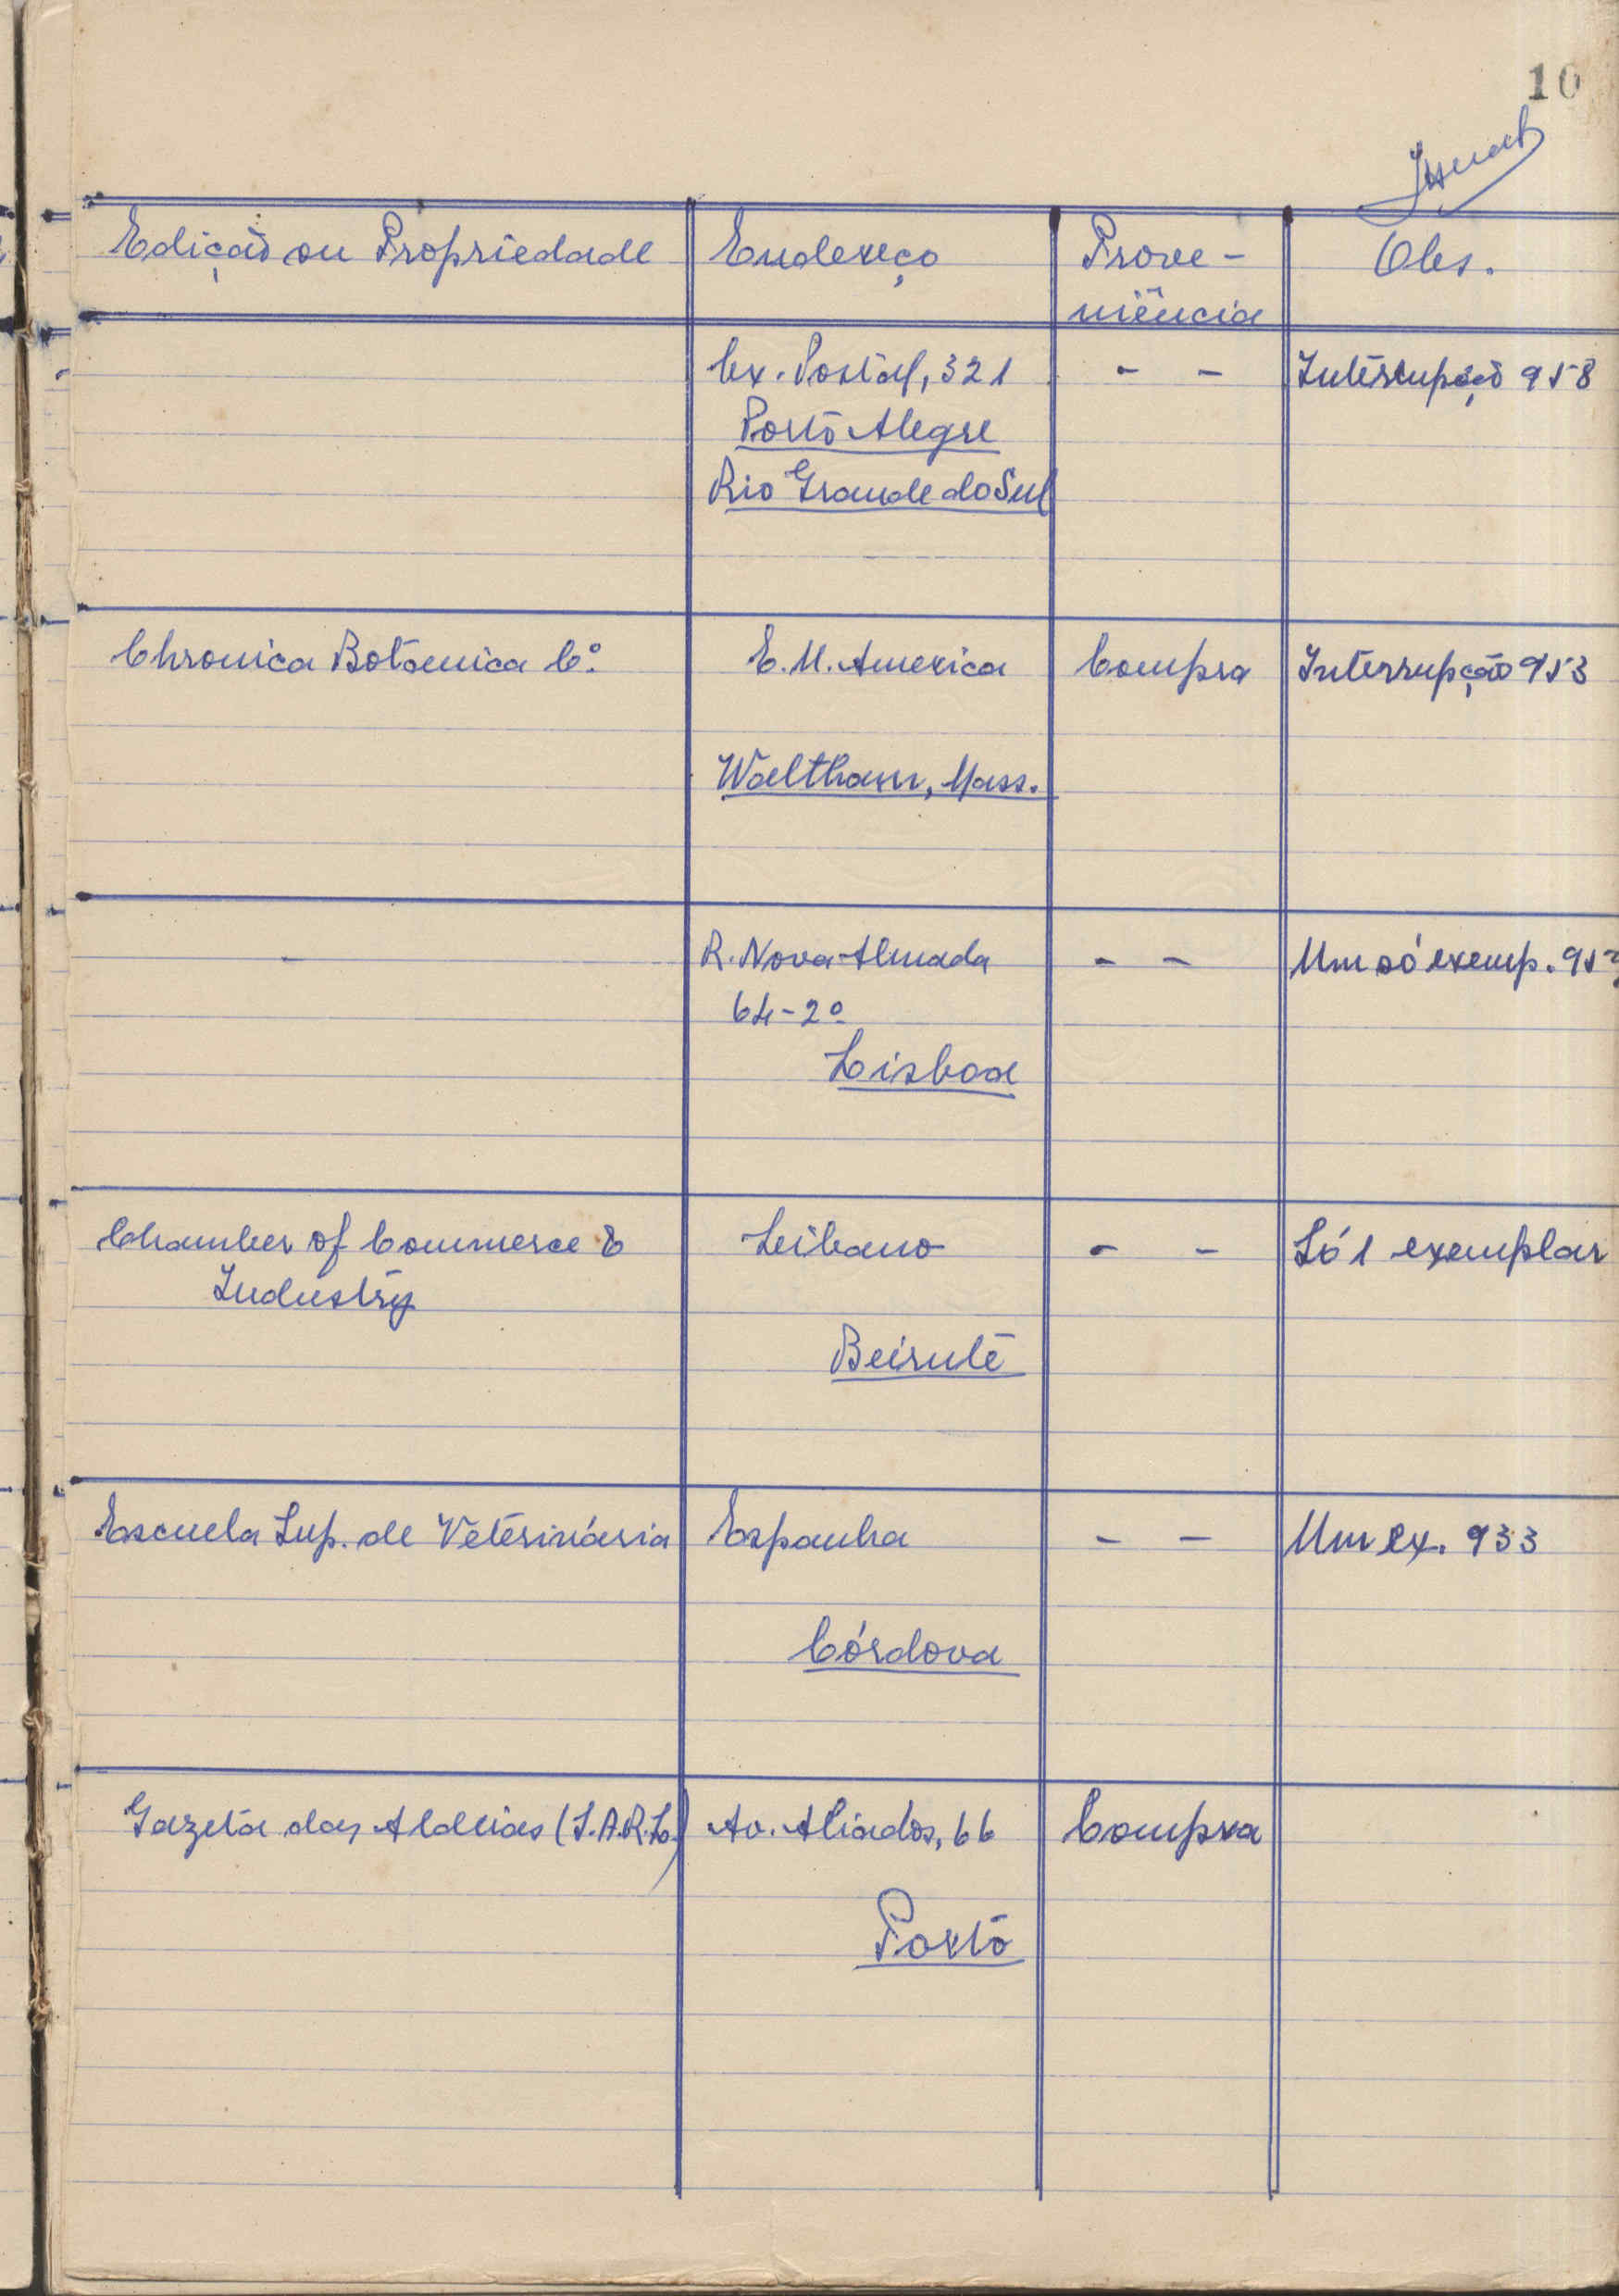 10
Edição ou Propriedade Endereço Prove- Obs.
niência
Cx. Postal, 321 - - Interrupção 958
Porto Alegre
Rio Grande do Sul
Chronica Botanica Cº. E. U. America Compra Interrupção 953
Waltham, Mass.
- R. Nova Almada - - Um só exemp.
64-2º
Lisboa
Chamber of Commerce & Libano - - Só 1 exemplar
Industry
Beirute
Escuela Sup. de Veterinária Espanha - - Um ex. 933
Córdova
Gazeta das Aldeias (S.A.R.L.) Av. Aliados, 66 Compra
Porto